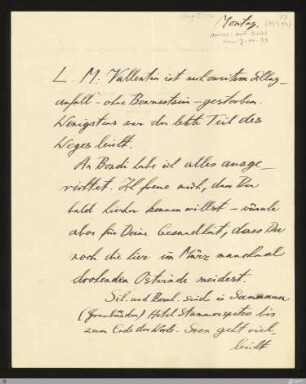 Montag.
L. M. Vallentin ist nach zweitem Schlag-
anfall - ohne Bewusstsein - gestorben.
Wenigstens war der letzte Teil des
Weges leicht.
An Bondi habe ich alles ausge-
richtet. Ich freue mich, dass Du
bald hierher kommen willst - wünsche
aber für Deine Gesundheit, dass Du
noch die hier im März manchmal
drohenden Ostwinde meidest.
Sil. und sind in
(Graubünden) Hotel bis
zum Ende der Woche. Sven geht viel-
leicht